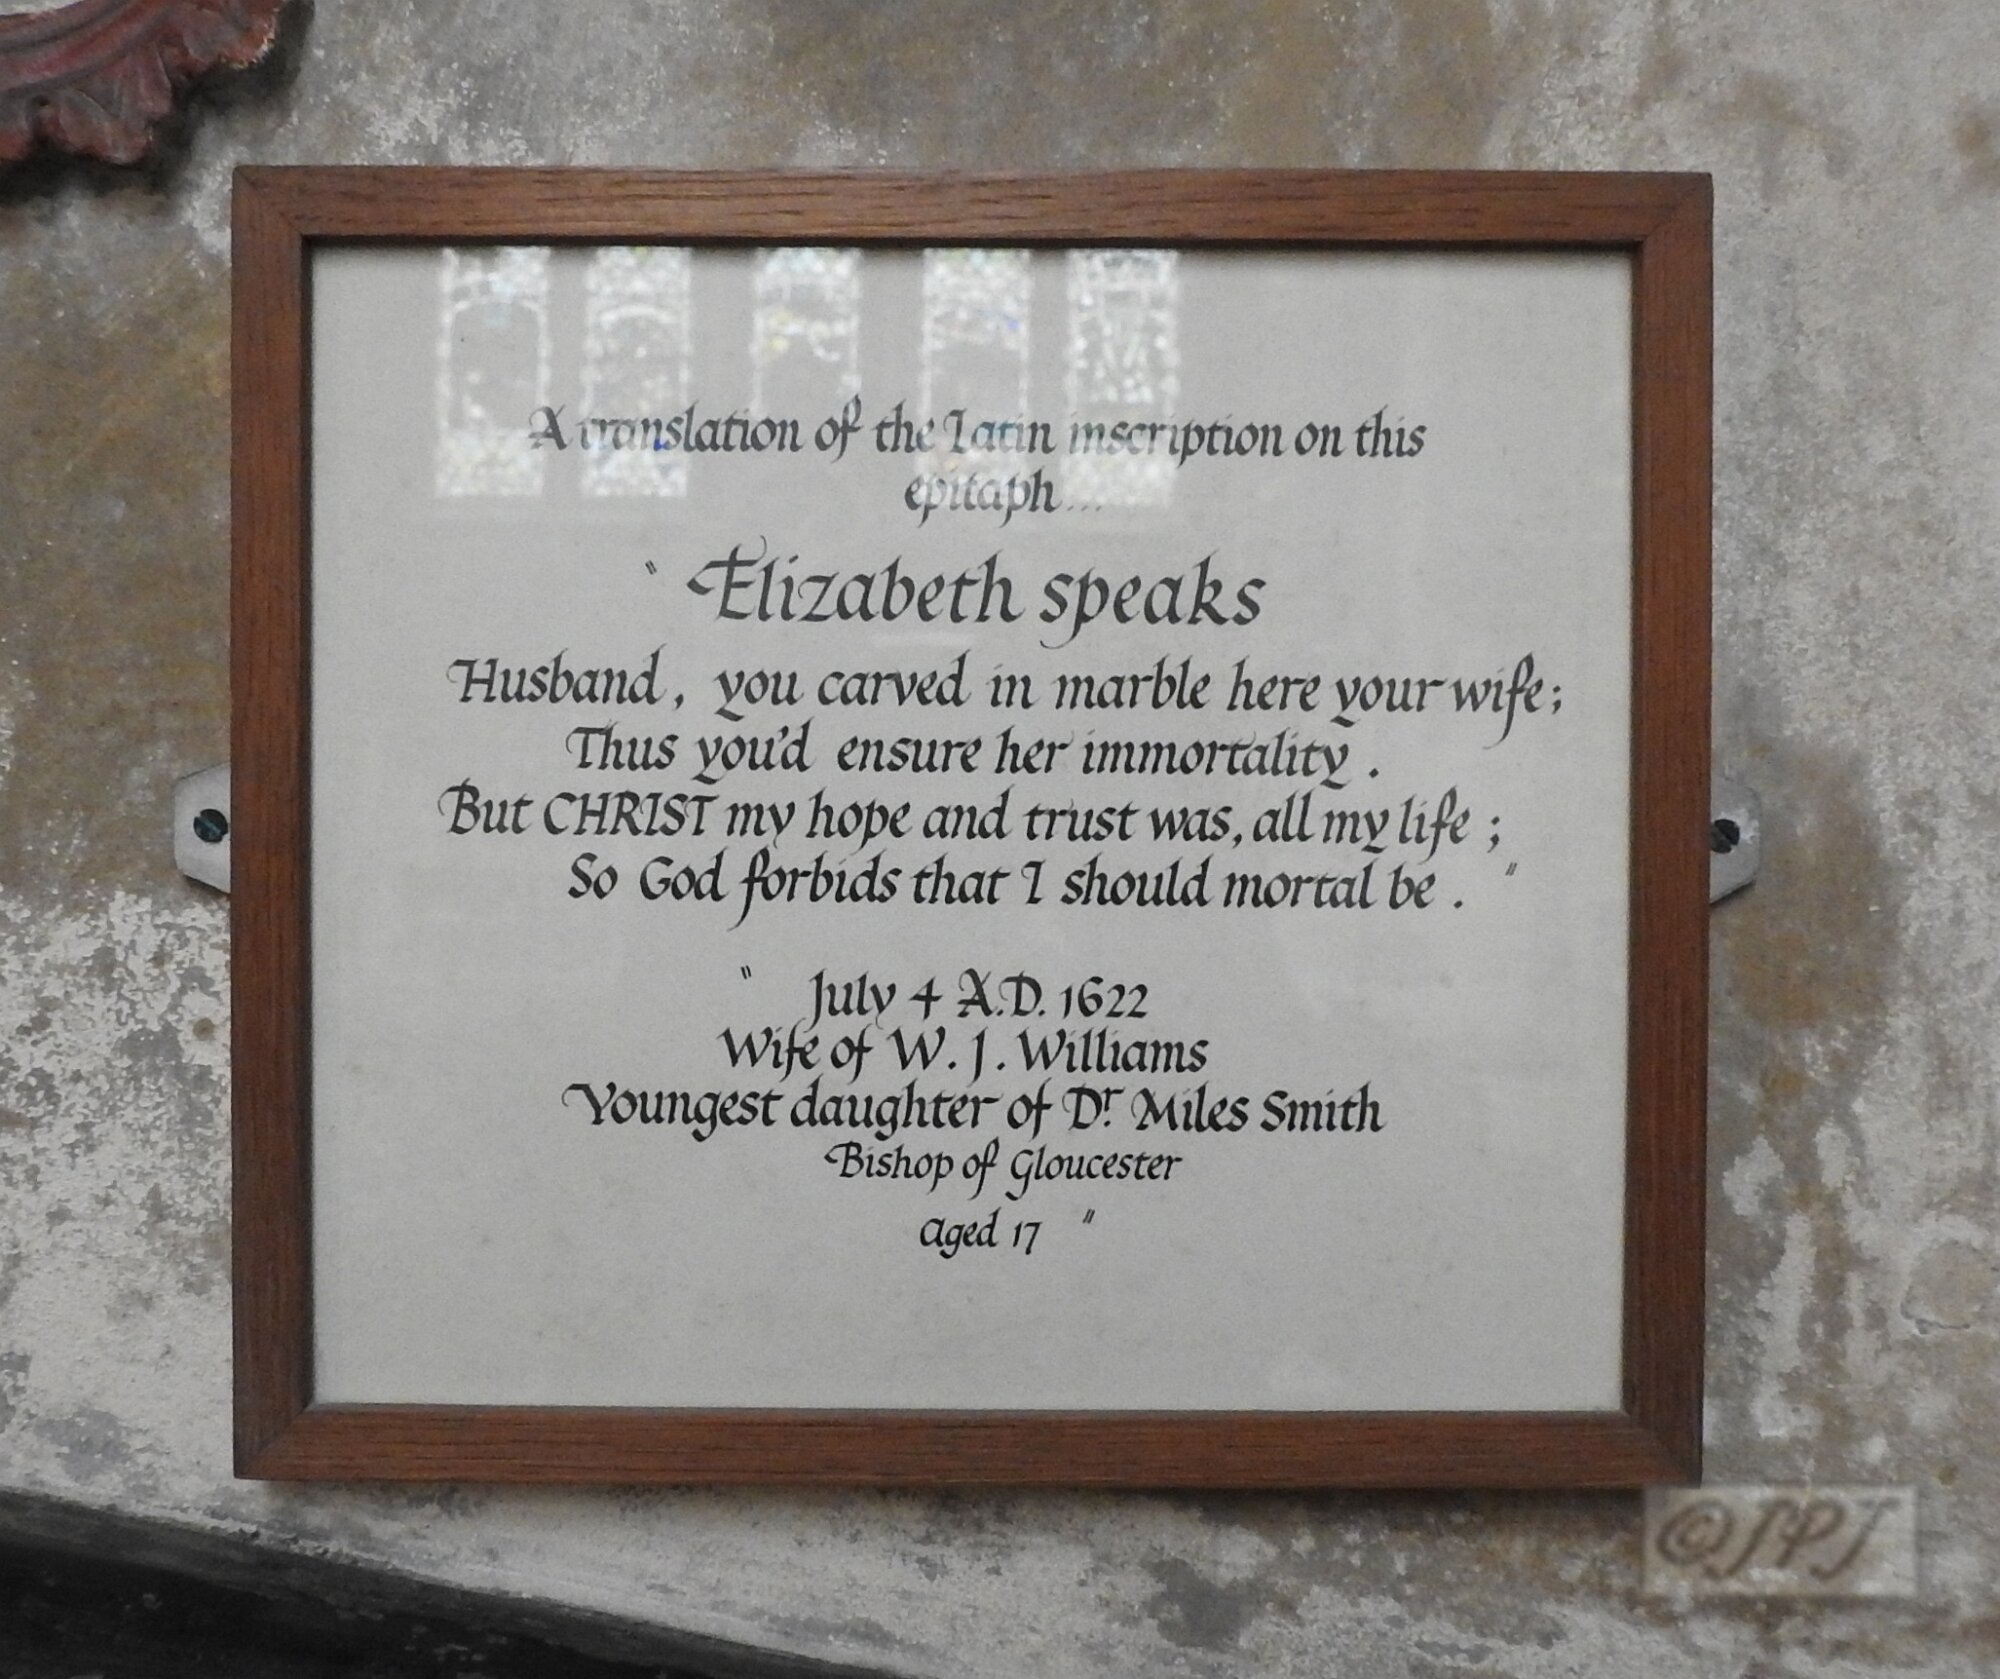 A translation of the Latin inscription on this
epitaph...
" Elizabeth speaks
Husband, you carved in marble here your wife;
Thus you'd ensure her immortality.
But CHRIST my hope and trust was, all my life;
So God forbids that I should mortal be. "
" July 4 A.D. 1622
Wife of W. J. Williams
Youngest daughter of Dr. Miles Smith
Bishop of Gloucester
Aged 17 "
©JPJ